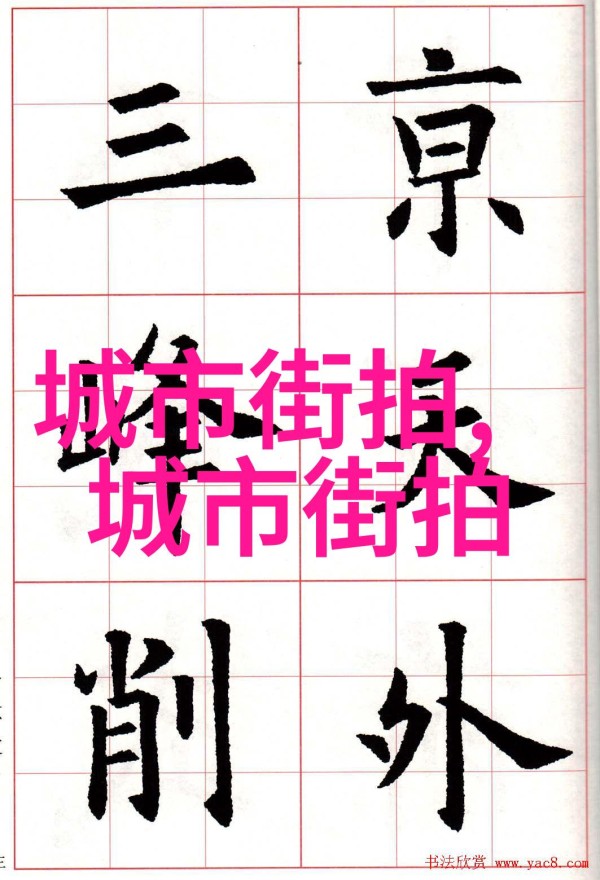 亰天外
三峰削
城市街拍,
城市街拍
书法欣赏 www.yac8.com